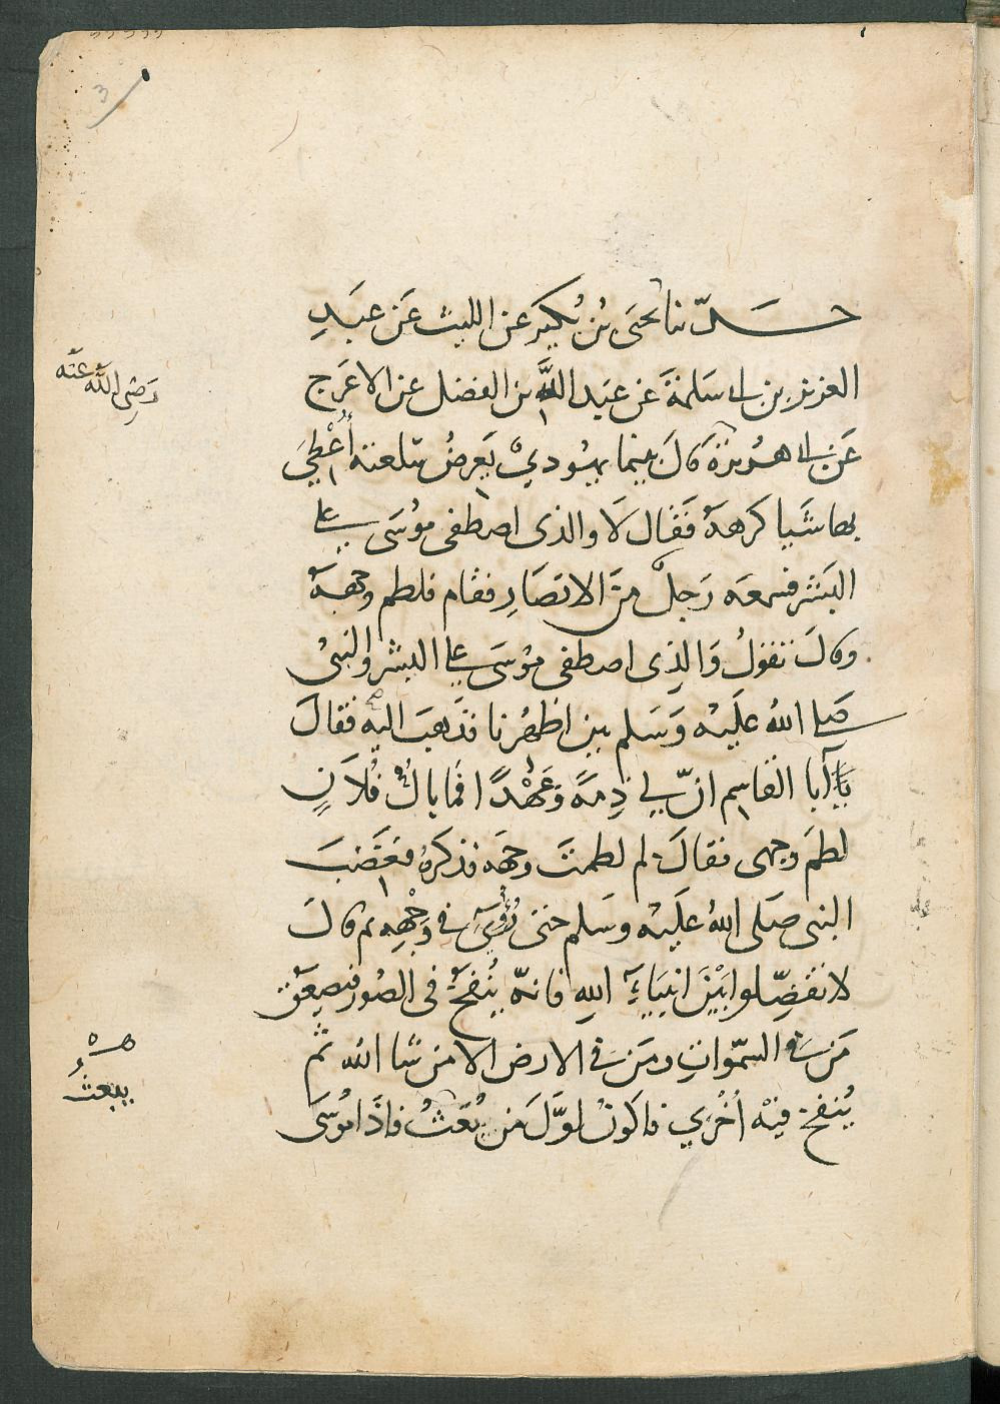 حدّثنا يحيَى بْن بُكَيرَ عن الليث عَن عبَدِ
العزيز بن ابى سَلمَةَ عَن عَبد اللَّه بن الفضل عن الاعَرَج
عَن ابى هُريرَة قَالَ بينما يهُودىٌّ يَعرضُ سلعته أُعْطِيَ
بها شَيا كرهَهُ فَقال لَا والذى اصطفى موُسَى على
البَشر فسمعَه رَجلٌ منَ الانصَارِ فقام فلطم وجهَهُ
وقالَ تقولُ وَالذِى اصطفى موُسَى على البشر والنبىُّ
صَلى اللهُ علَيْه وَسَلم بين اظهُرنا فذَهبَ اليه فقالَ
يَا أبا القاسِم انّ لي ذِمَّةً وَعَهْدًا فَما بالُ فُلاَنٍ
لطمَ وجهى فقالَ لم لطمتَ وجهَه فذكرهُ فغَضبَ
النبى صَلى اللهُ علَيْه وسَلم حتى رُؤىَ فى وَجْهِه ثم قالَ
لا تفَضِّلوا بَيْنَ انبيَاءِ اللهِ فانهّ يُنفخُ فى الصُور فيصعَقُ
مَن فى السَّموَاتِ ومَن فى الارض الا من شا الله ثم
يُنفخ فيْه أُخْرَي فاكونُ اوَّلَ مَن بُعَثُ فاذَا مُوسَى
رَضِى اللَّه عنْه
يبعثُ